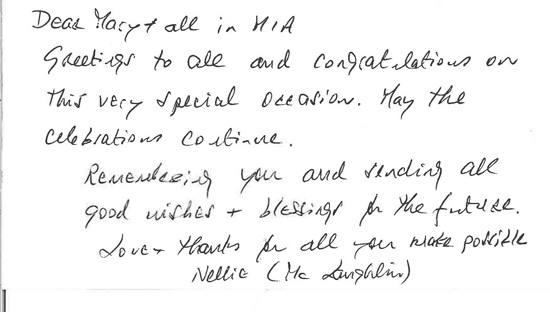 Dear Mary + all in MIA
Greetings to all and congratulations on
this very special occasion. May the
celebrations continue.
Remembering you and sending all
good wishes + blessings for the future.
Love + thanks for all you make possible
Nellie (Mc Laughlin)